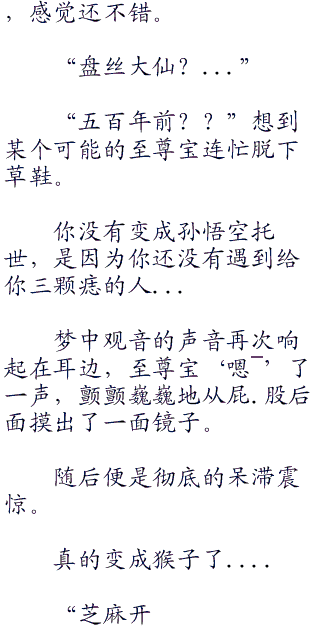 ，感觉还不错。
“盘丝大仙？...”
“五百年前？？”想到
某个可能的至尊宝连忙脱下
草鞋。
你没有变成孙悟空托
世，是因为你还没有遇到给
你三颗痣的人...
梦中观音的声音再次响
起在耳边，至尊宝‘嗯¯’了
一声，颤颤巍巍地从屁.股后
面摸出了一面镜子。
随后便是彻底的呆滞震
惊。
真的变成猴子了....
“芝麻开